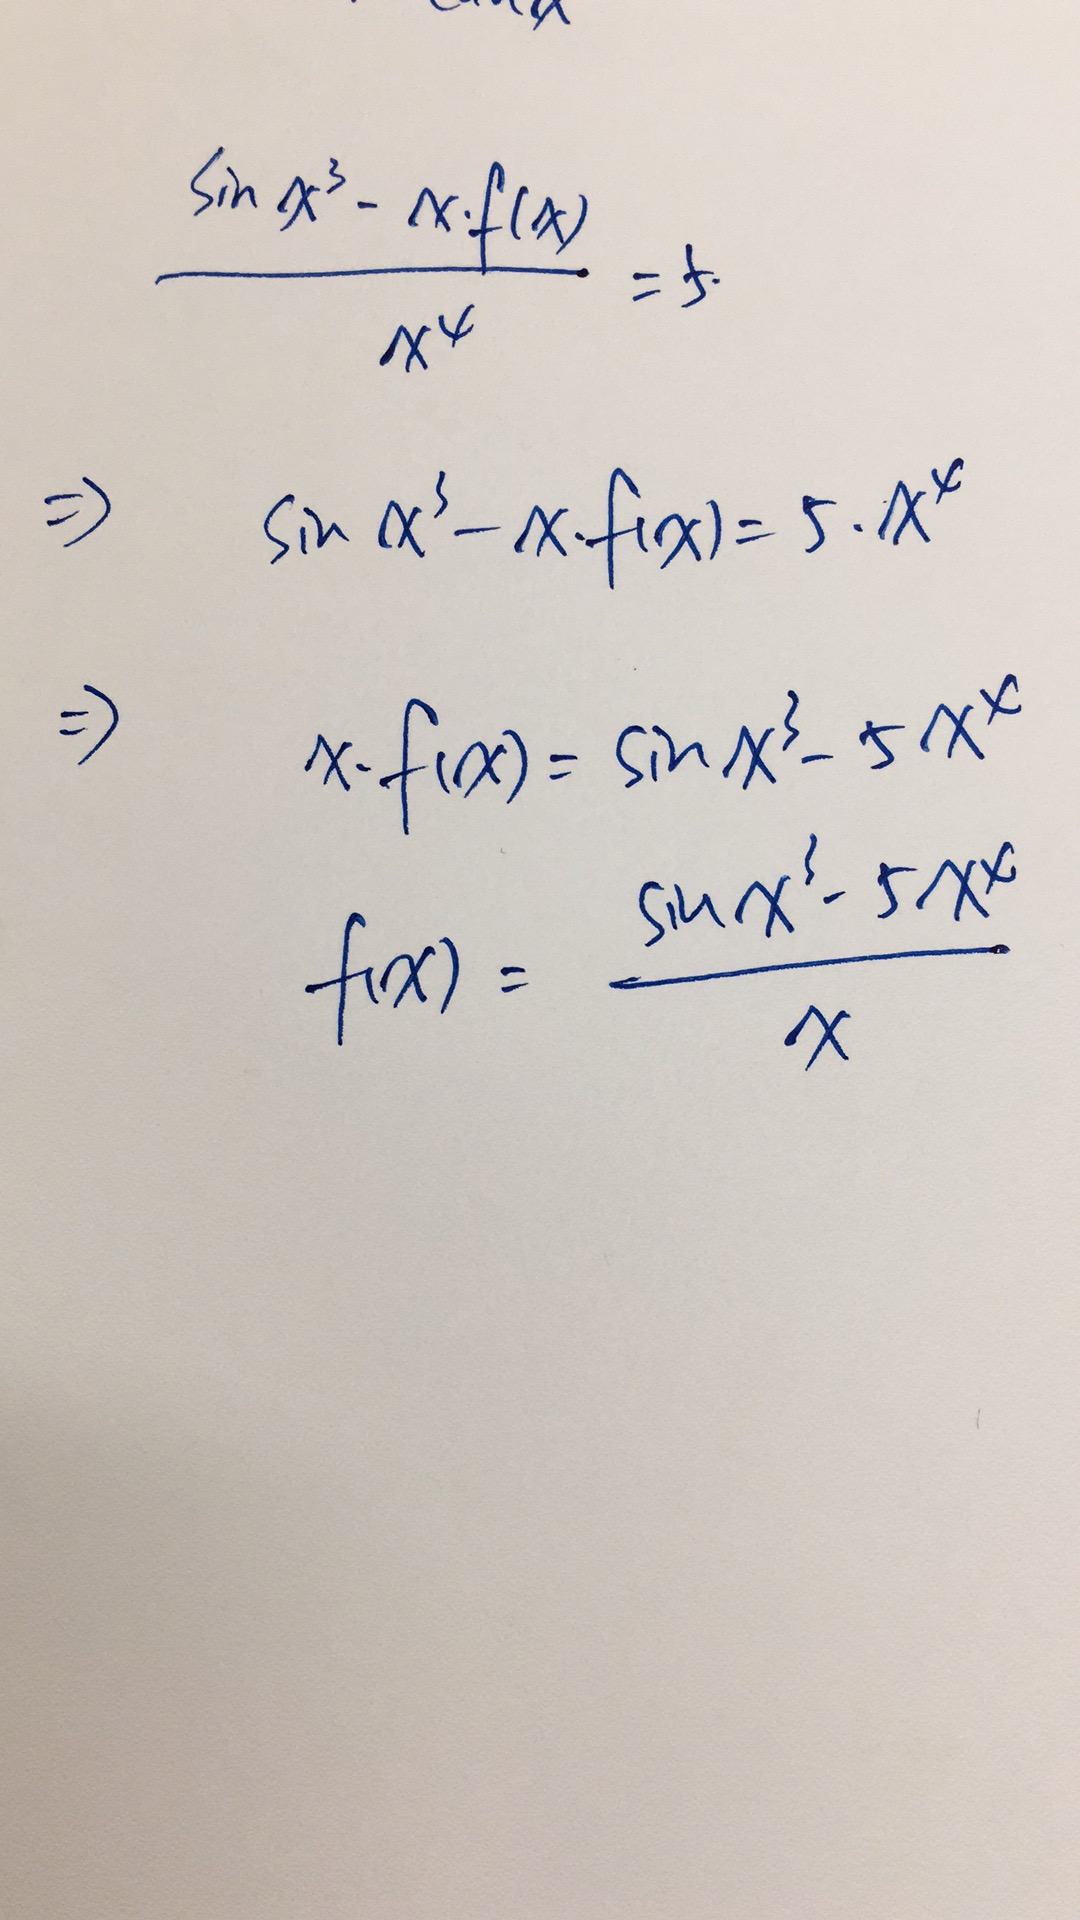 sin x³ - x·f(x)
x⁴
= 5.
⇒ sin x³ - x·f(x) = 5·x⁴
⇒ x·f(x) = sin x³ - 5x⁴
f(x) = sin x³ - 5x⁴
x